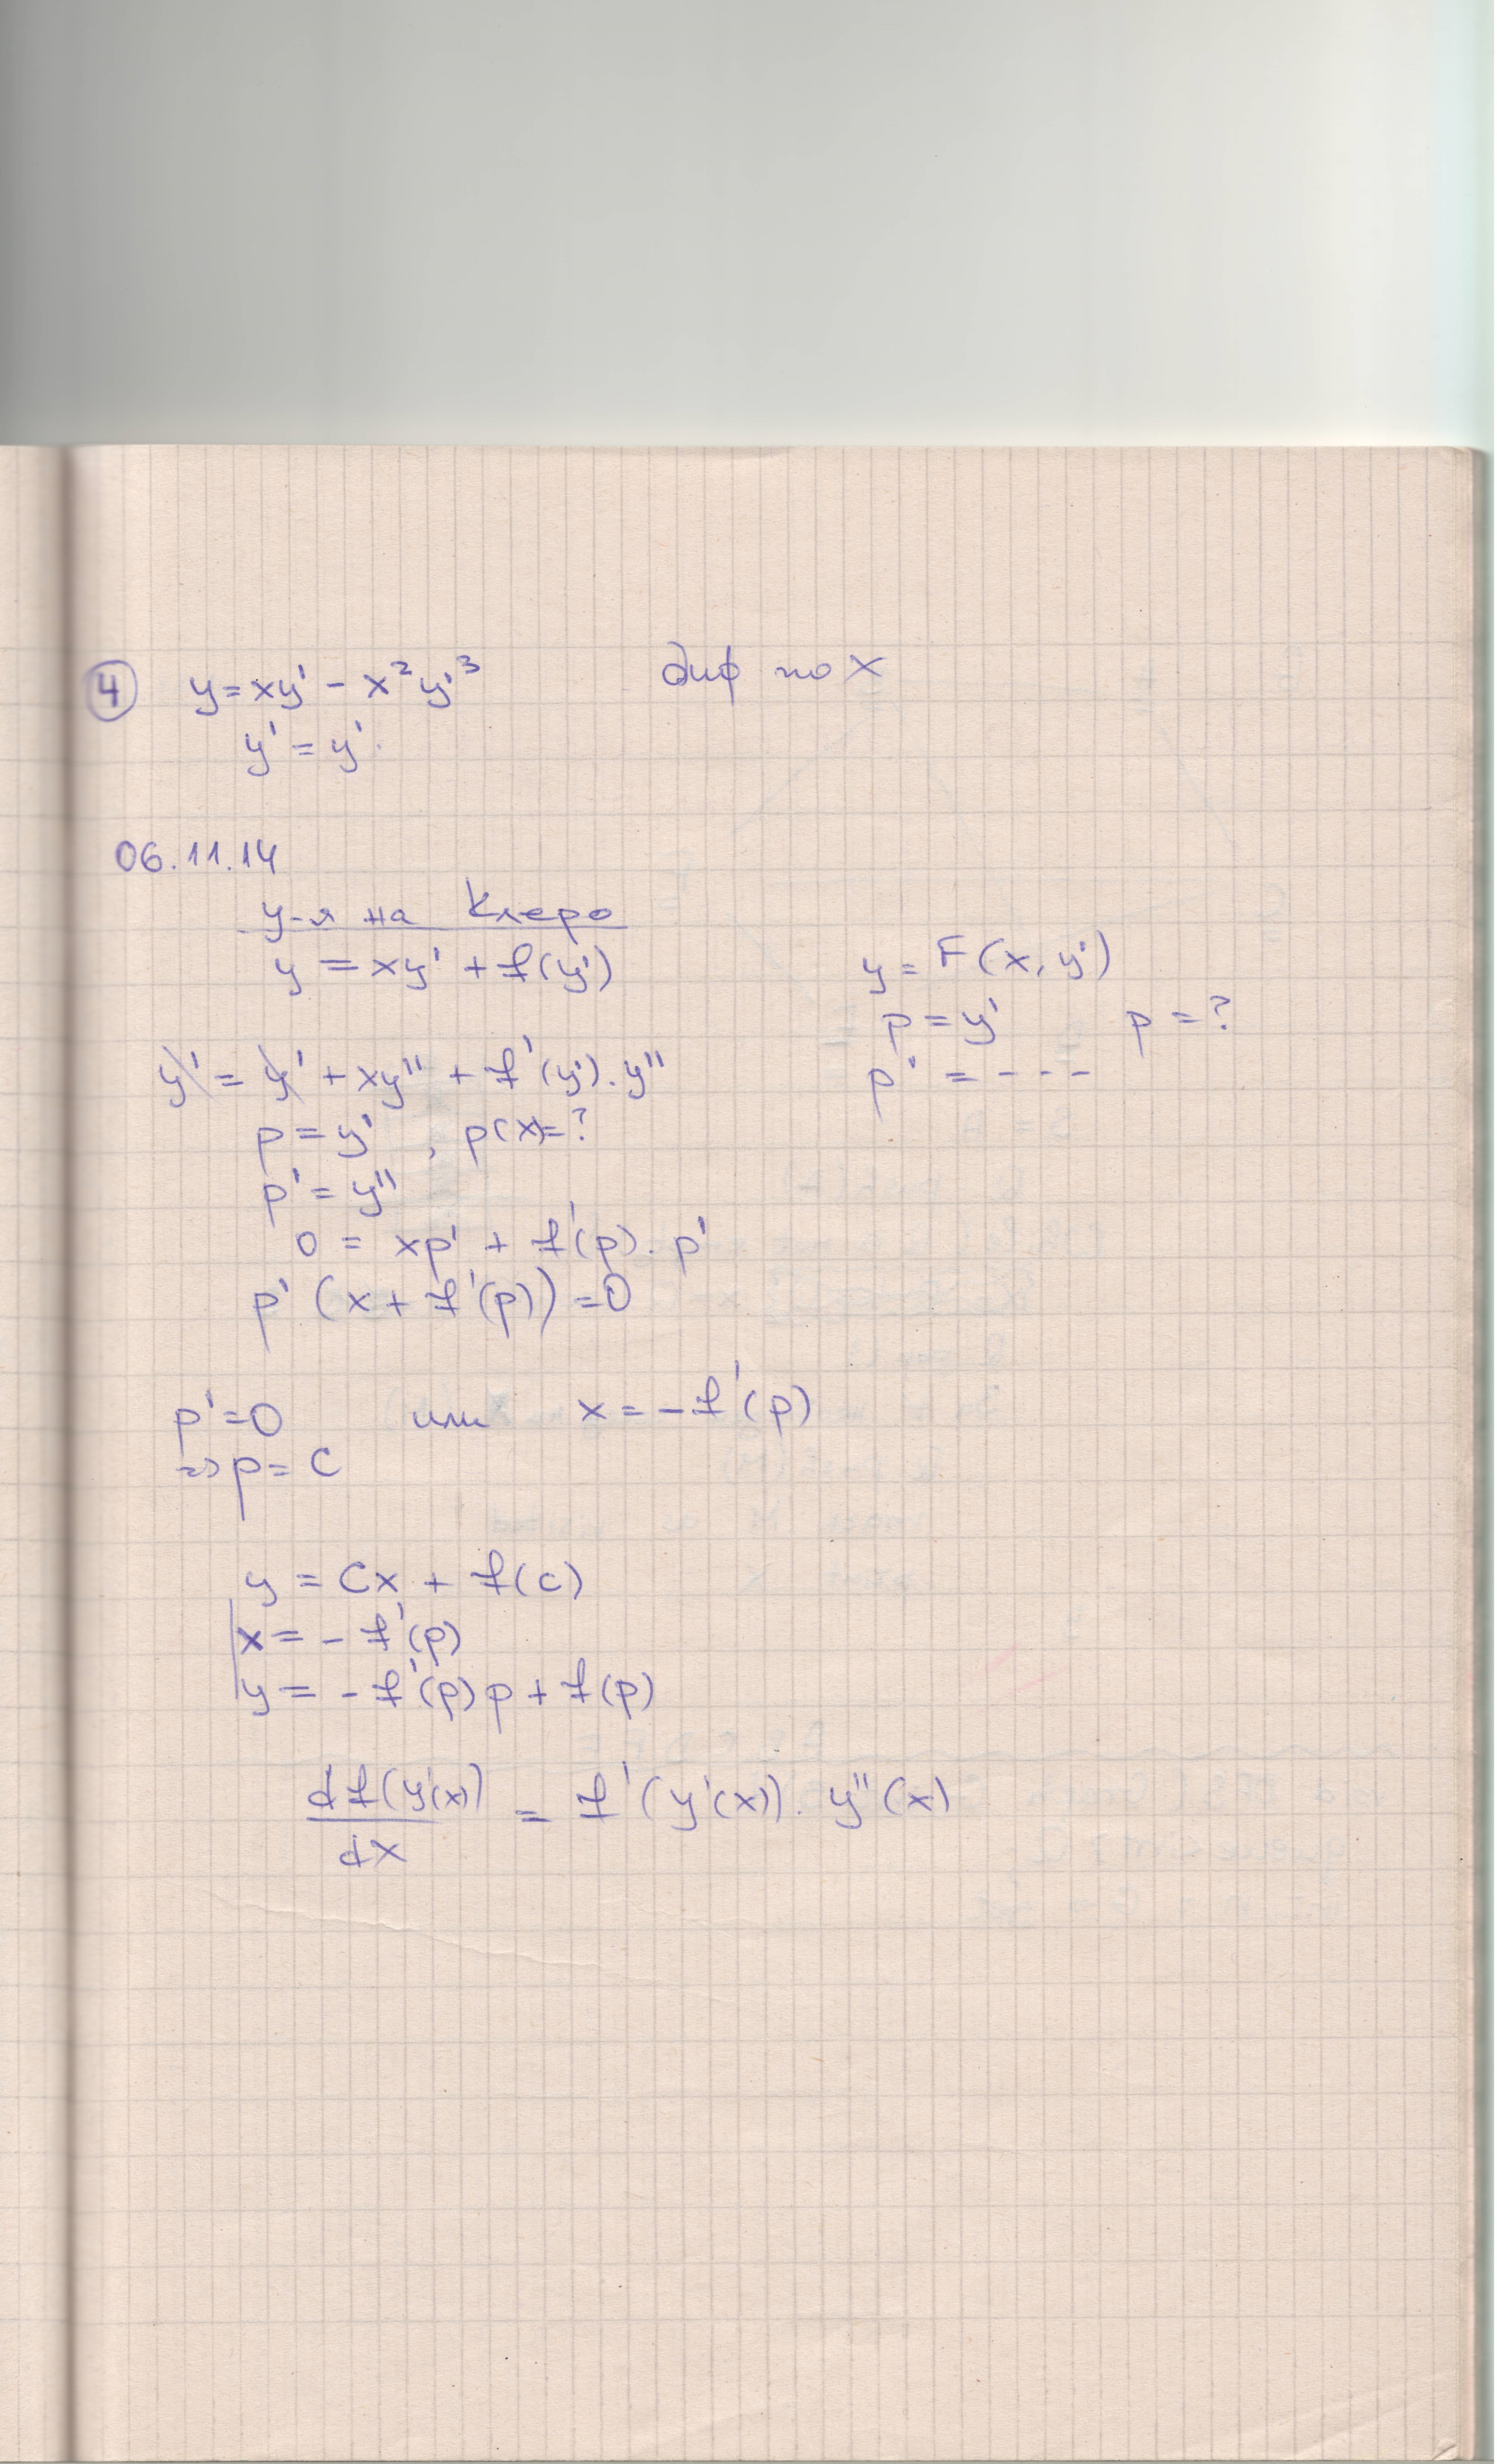 ④ y = xy' - x²y'³ диф по x
y' = y'.
06.11.14
у-я на Клеро
y = xy' + f(y')
y = F(x, y')
p = y' p = ?
p' = - - -
y' = y' + xy'' + f'(y').y''
p = y' , p(x)=?
p' = y''
0 = xp' + f'(p).p'
p' (x + f'(p)) = 0
p' = 0 или x = -f'(p)
=> p = C
y = Cx + f(c)
x = - f'(p)
y = - f'(p)p + f(p)
df(y'(x))/dx = f'(y'(x)).y''(x)